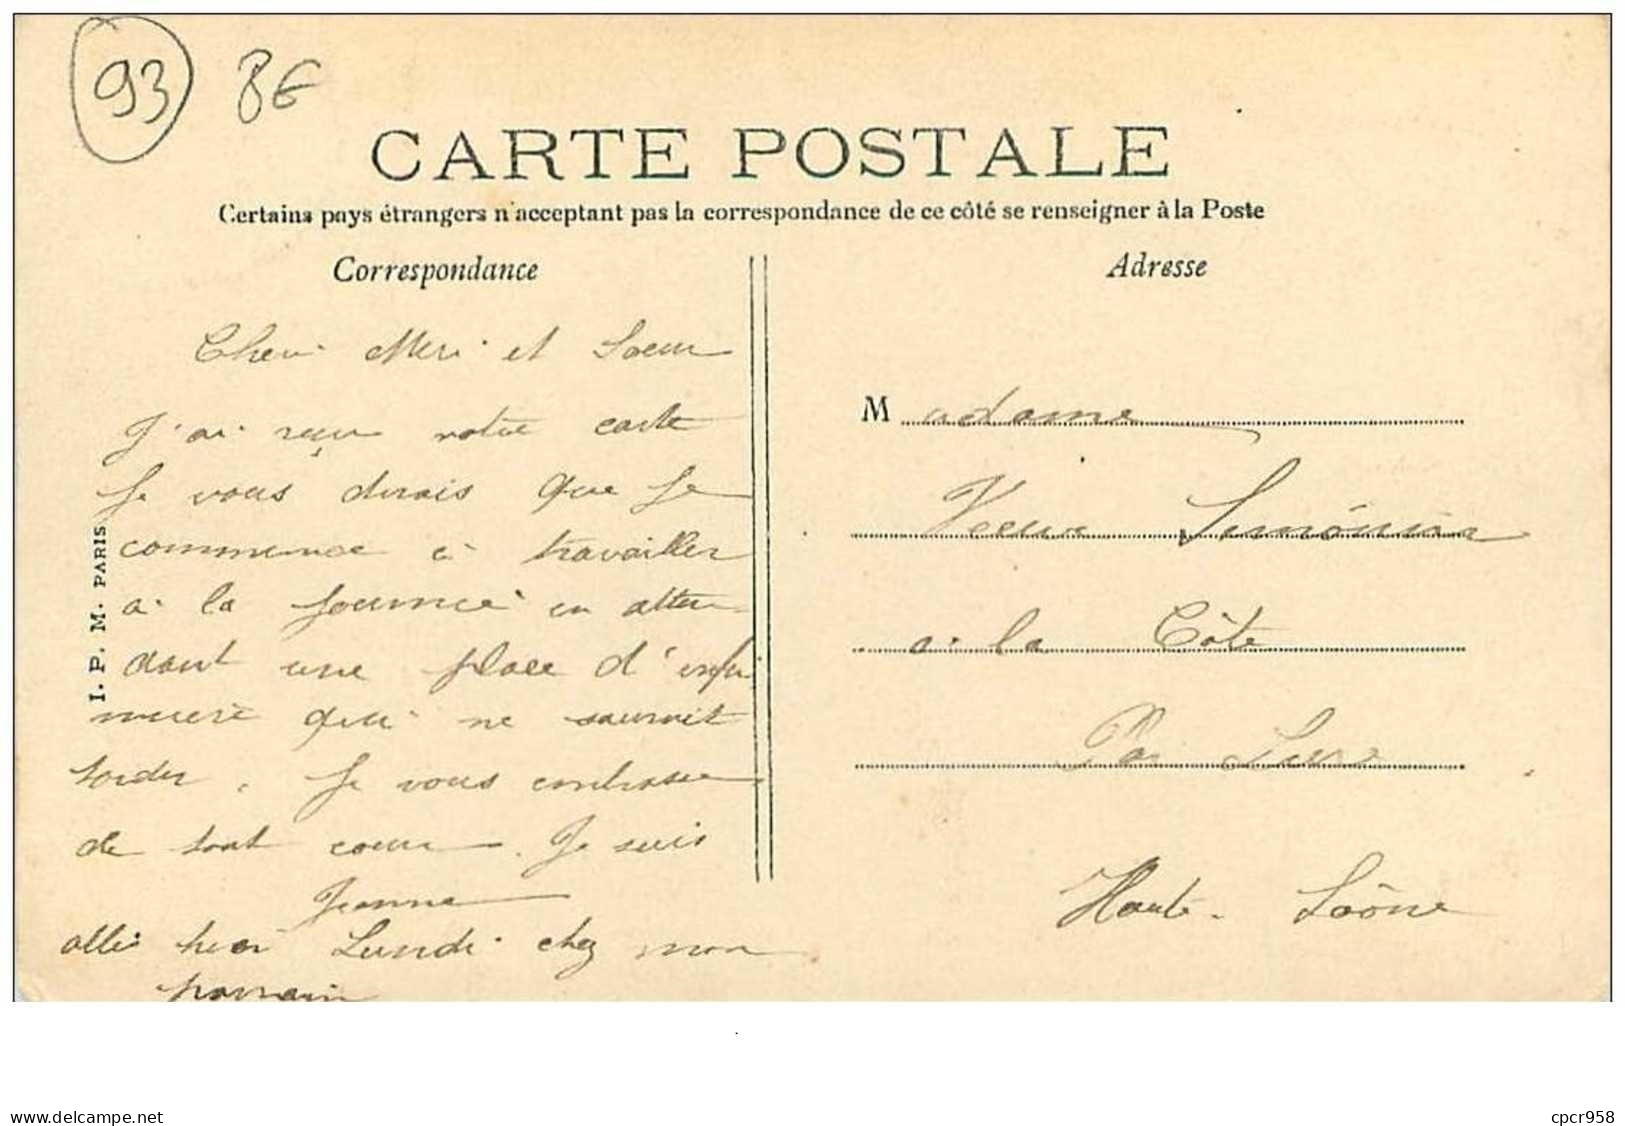 93 8€
CARTE POSTALE
Certains pays étrangers n'acceptant pas la correspondance de ce côté se renseigner à la Poste
Correspondance
Adresse
Cher Mère et Sœur
J'ai reçu votre carte
Je vous dirais que je
commence à travailler
à la journée en atten-
dant une place d'infir
mière qui ne saurait
tarder. Je vous embrasse
de tout cœur. Je suis
Jeanne
allé hier Lundi chez mon
parrain
I. P. M. PARIS
Madame
Veuve
à la Côte
Par Lure
Haute-Saône
delcampe.net
cpcr958